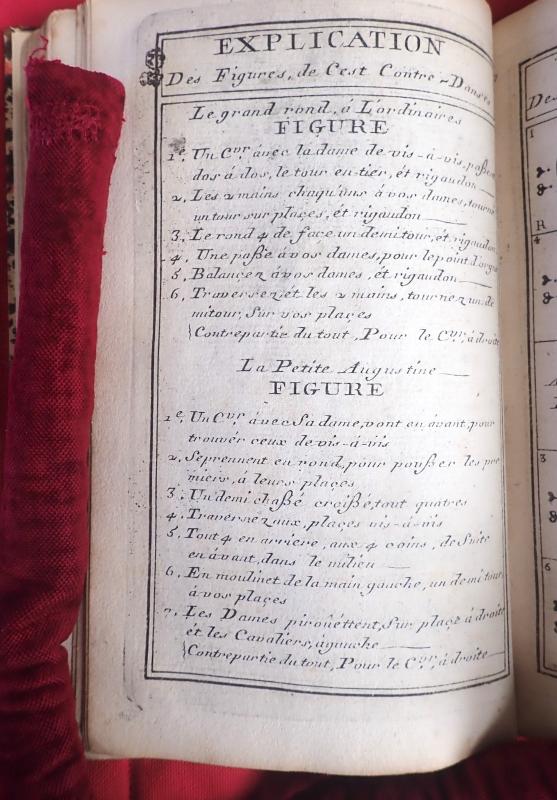 EXPLICATION
Des Figures, de Cest Contre-Danses
Le grand rond, á L'ordinaires
FIGURE
1e, Un Cvr. ávec la dame de vis-á-vis, paßent
dos á dos, le tour en-tier, ét rigaudon
2, Les 2 mains chaqu'uns á vos dames, tournez
un tour sur plaçes, ét rigaudon
3, Le rond 4 de face un demi tour, ét rigaudon
4, Une paße á vos dames, pour le point d'orgue
5, Balançez á vos dames, ét rigaudon
6, Traversez ét les 2 mains, tournez un de
mitour, Sur vos plaçes
Contrepartie du tout, Pour le Cvr. á droite
La Petite Augustine
FIGURE
1e, Un Cvr ávec Sa dame, vont en ávant, pour
trouvér ceux de vis-á-vis
2, Séprennent en rond, pour poußer les pre
miers, á leurs plaçes
3, Un demi chaßé croißé, tout quatres
4, Traversez aux, plaçes vis-á-vis
5, Tout 4 en arriere, aux 4 coins, de Suite
en ávant, dans le milieu
6, En moulinet de la main gauche, un demi tour
á vos plaçes
7, Les Dames pirouéttent, Sur plaçe á droite
et les Cavaliers, á gauche
Contrepartie du tout, Pour le Cvr. á droite
De
1
R
4
3
6